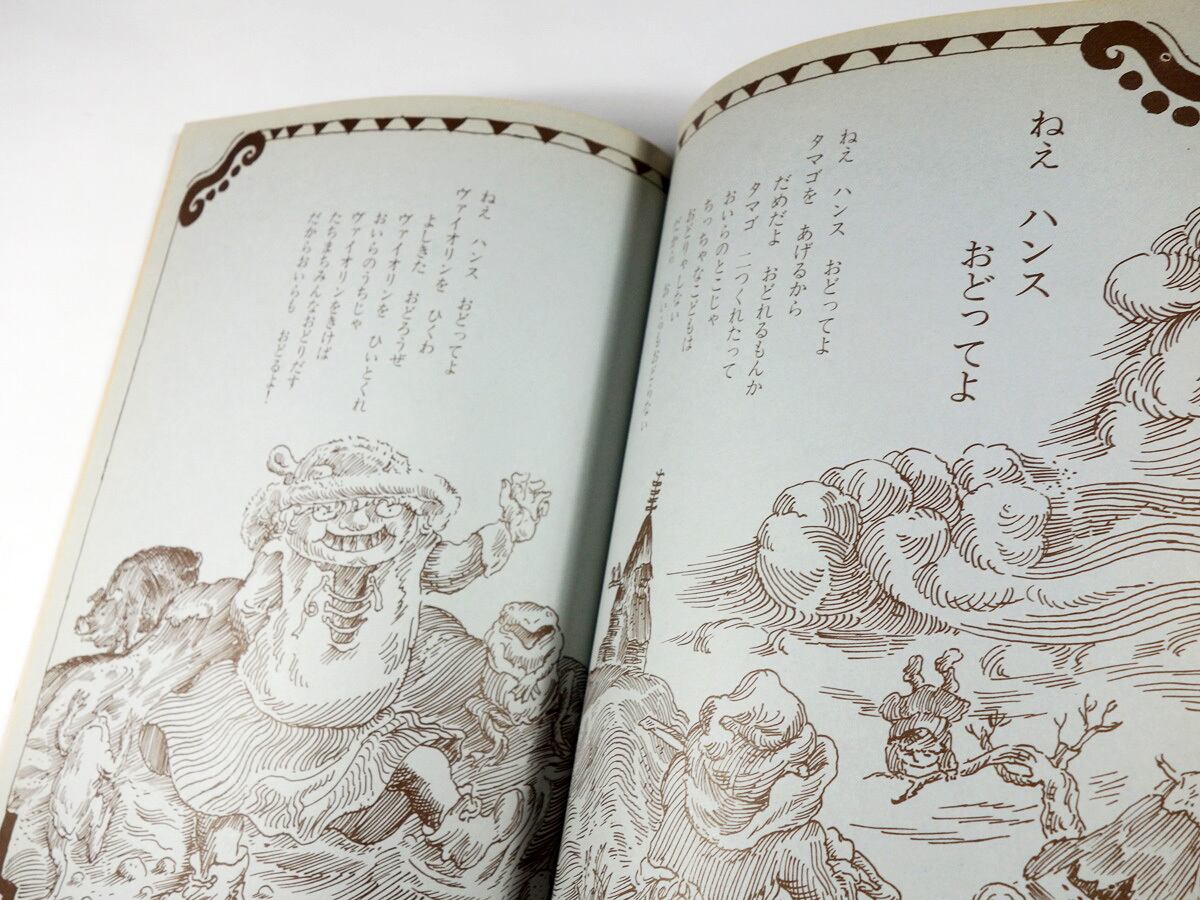 ねえ　ハンス
おどってよ
ねえ　ハンス　おどってよ
タマゴを　あげるから
だめだよ　おどれるもんか
タマゴ　二つくれたって
おいらのとこじゃ
ちっちゃなこどもは
おどりゃしない
だから　おいらもおどらない
ねえ　ハンス　おどってよ
ヴァイオリンを　ひくわ
よしきた　おどろうぜ
ヴァイオリンを　ひいとくれ
おいらのうちじゃ
ヴァイオリンをきけば
たちまちみんなおどりだす
だからおいらも　おどるよ！